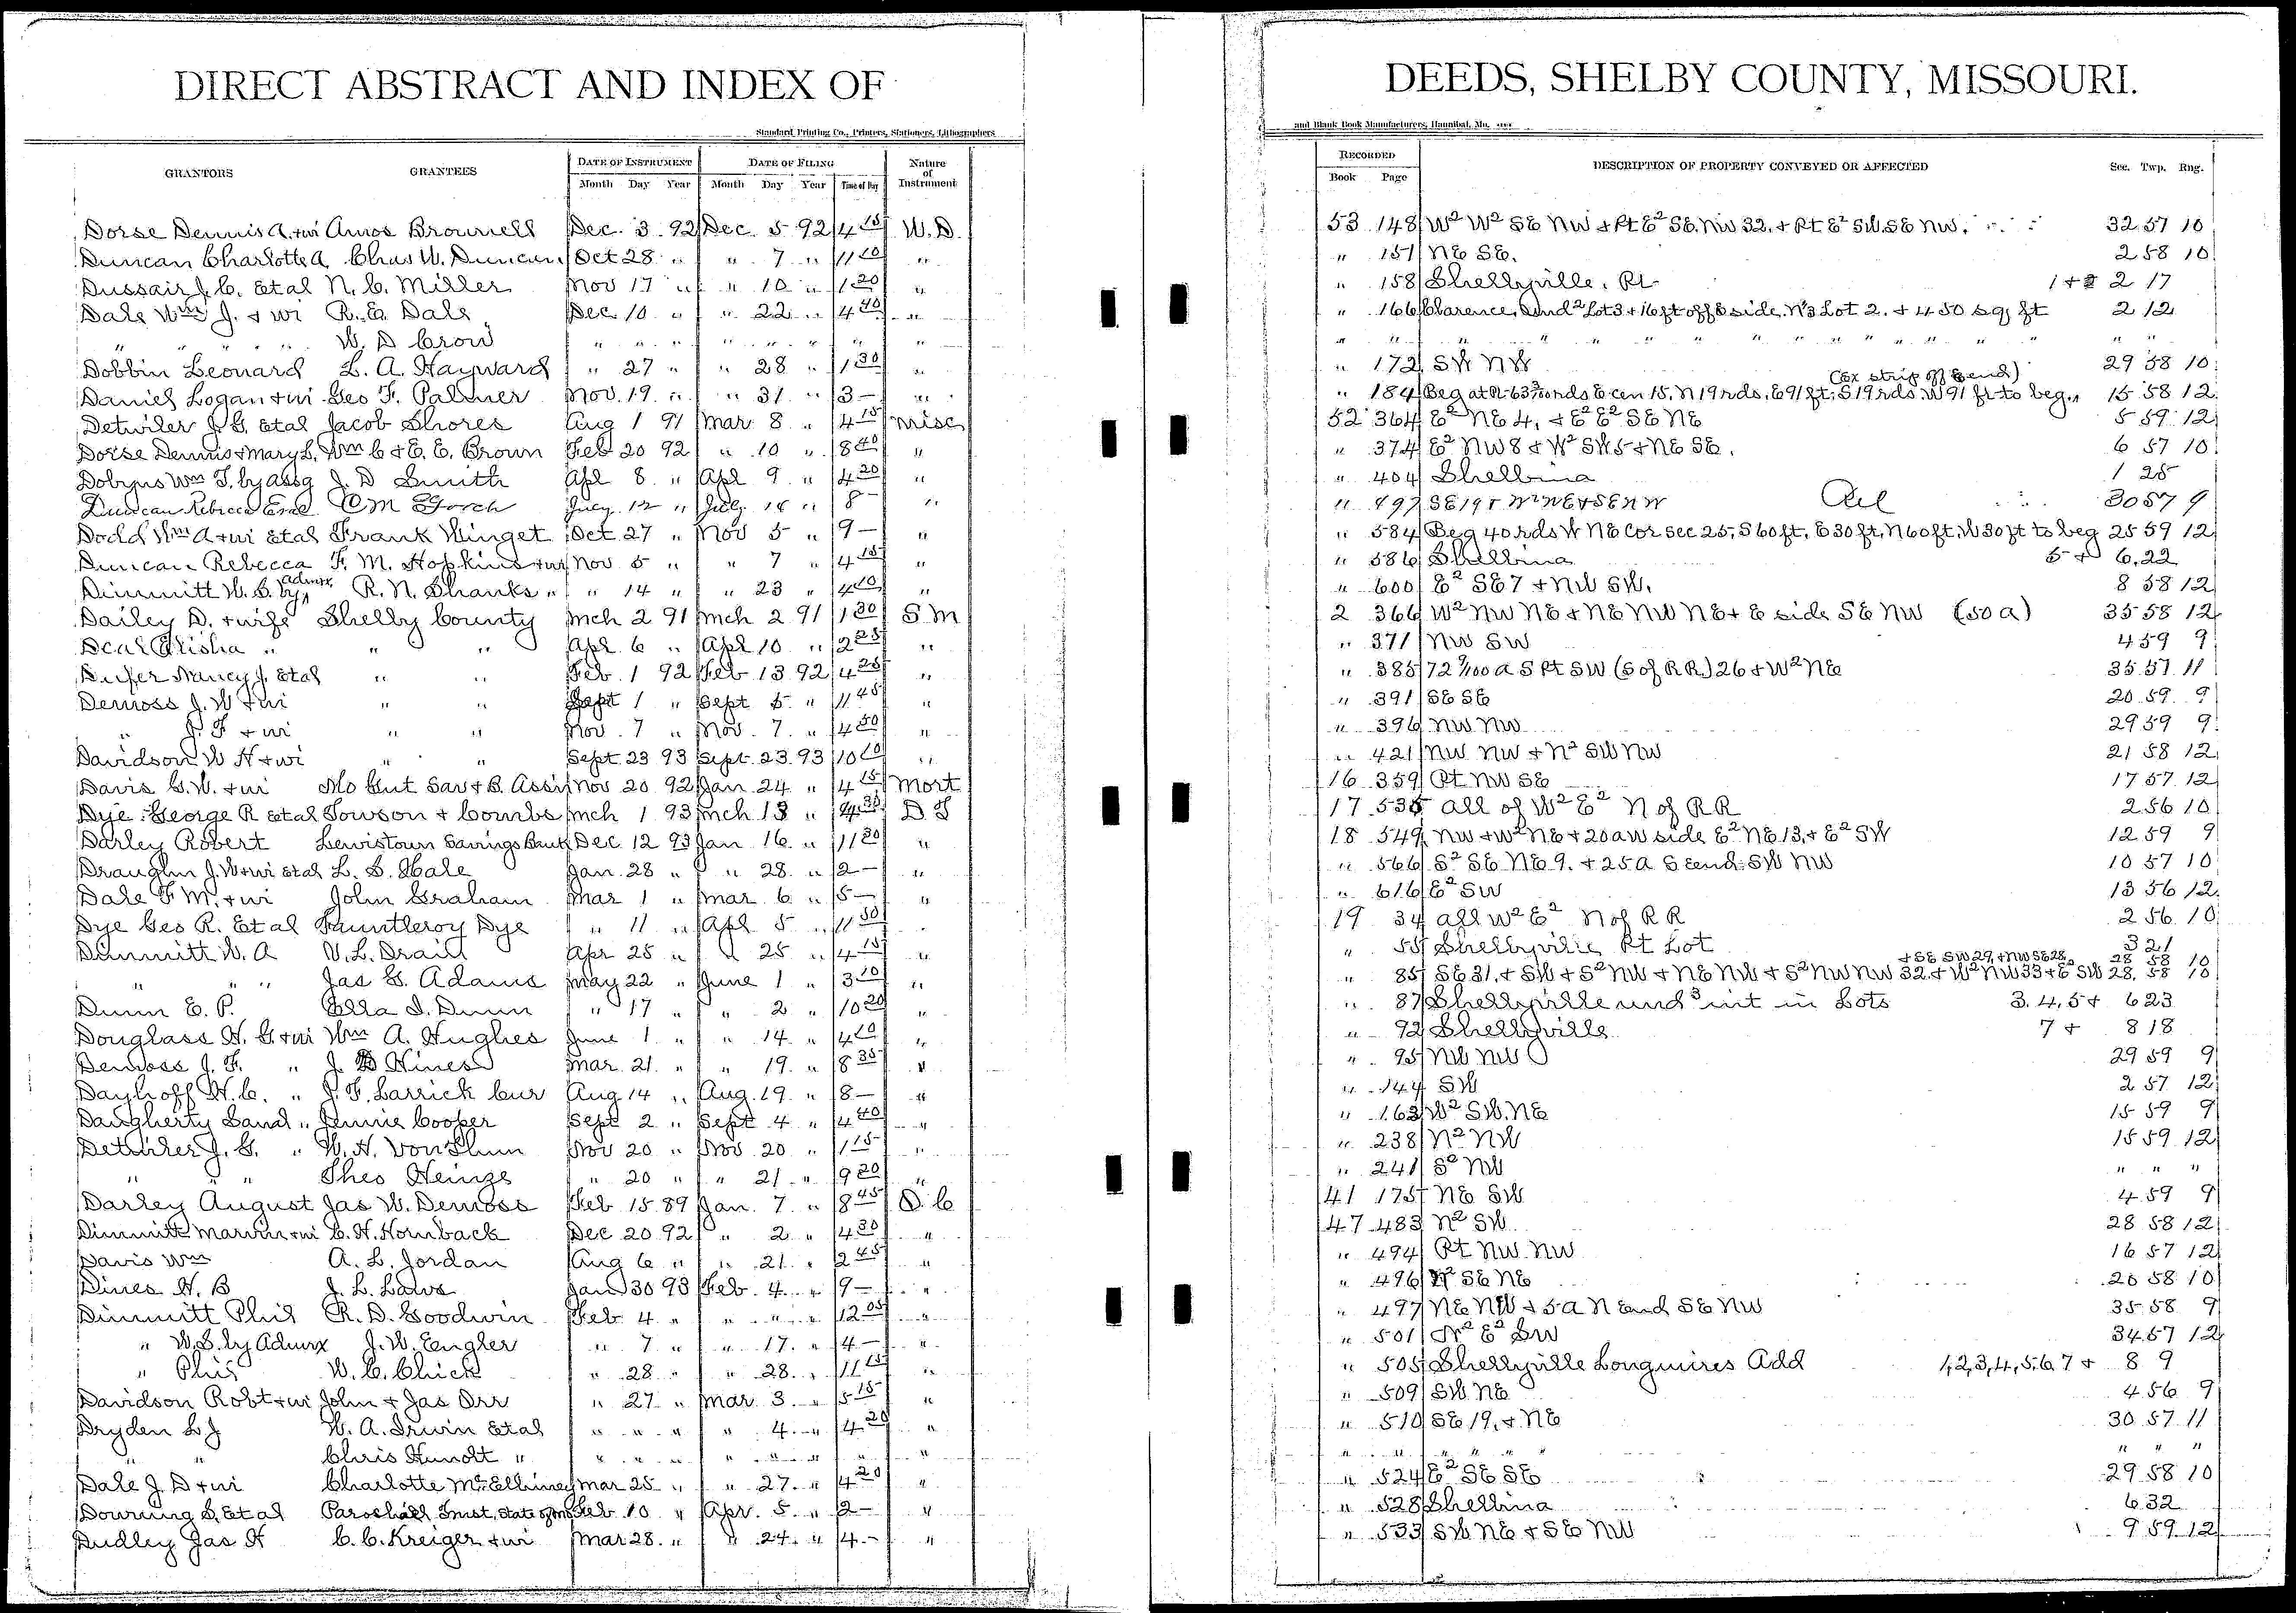 DIRECT ABSTRACT AND INDEX OF
Standard Printing Co., Printers, Stationers, Lithographers
GRANTORS GRANTEES DATE OF INSTRUMENT DATE OF FILING Nature of Instrument
Month Day Year Month Day Year Time of Day
Dorse Dennis A. + wi Amos Brownell Dec. 3 92 Dec. 5 92 4 15 W.D.
Duncan Charlotte A. Chas W. Duncan Oct 28 " " 7 " 11 20 "
Dussair J. C. Etal N. C. Miller Nov 17 " " 10 " 1 20 "
Dale Wm J. + wi R. E. Dale Dec. 10 " " 22 " 4 40 "
" " " " W. D Crow " " " " " " " "
Dobbin Leonard L. A. Hayward " 27 " " 28 " 1 30 "
Daniel Logan + wi Geo F. Palmer Nov. 19 " " 31 " 3 — "
Detwiler J. G. Etal Jacob Shores Aug 1 91 Mar 8 " 4 15 Misc
Dorse Dennis + Mary L. Wm C + E. E. Brown Feb 20 92 " 10 " 8 40 "
Dobyns Wm T. by assg J. D Smith Apl 8 " Apl 9 " 4 20 "
Duncan Rebecca Etal July 12 " July 14 " 8 — "
Dodd Wm A + wi Etal Frank Winget Oct 27 " Nov 5 " 9 — "
Duncan Rebecca F. M. Hopkins + wi Nov 5 " " 7 " 4 15 "
Dimmitt W. S. by admx R. N. Shanks " " 14 " " 23 " 4 10 "
Dailey D. + wife Shelby County Mch 2 91 Mch 2 91 1 30 S M
Deal Elisha " " " Apl. 6 " Apl 10 " 2 25 "
Nancy J. Etal " " Feb 1 92 Feb 13 92 4 25 "
Demoss J. W + wi " " Sept 1 " Sept 5 " 11 45 "
" J. F + wi " " Nov 7 " Nov. 7 " 4 50 "
Davidson W H + wi " " Sept 23 93 Sept. 23 93 10 10 "
Davis G. W. + wi Mo Gut Sav + B. Assn Nov 20 92 Jan. 24 " 4 15 Mort
Dye George R Etal Towson + Combs Mch 1 93 Mch 13 " 4 30 D. T
Darley Robert Lewistown Savings Bank Dec 12 93 Jan 16 " 11 20 "
Draughn J. W + wi Etal L. S. Hale Jan. 28 " " 28 " 2 — "
Dale F M. + wi John Graham Mar 1 " Mar 6 " 5 — "
Dye Geo R. Et al Fauntleroy Dye " 11 " Apl 5 " 11 50 "
Dimmitt W. A V. L. Drain Apr 25 " " 25 " 4 15 "
" " " Jas G. Adams May 22 " June 1 " 3 10 "
Dunn E. P. Ella I. Dunn " 17 " " 2 " 10 20 "
Douglass H. G. + wi Wm A. Hughes June 1 " " 14 " 4 10 "
Demoss J. F. " J. D Hines Mar. 21 " " 19 " 8 35 "
Dayhoff H. C. " J. F. Larrick Cur Aug 14 " Aug. 19 " 8 — "
Daugherty Sand " Jennie Cooper Sept 2 " Sept 4 " 4 40 "
Detwiler J. G. " W. H. Von Thun Nov 20 " Nov 20 " 1 15 "
" " " Theo Heinze " 20 " " 21 " 9 20 "
Darley August Jas W. Demoss Feb 15 89 Jan. 7 " 8 45 Q. C
Dimmitt Marvin + wi C. H. Hornback Dec 20 92 " 2 " 4 30 "
Davis Wm A. L. Jordan Aug 6 " " 21 " 2 45 "
Dines H. B J. L. Laws Jan 30 93 Feb 4 " 9 — "
Dimmitt Phil R. D. Goodwin Feb 4 " " " " 12 05 "
" W. S. by Admrx J. W. Engler " 7 " " 17 " 4 — "
" Phil W. C. Chick " 28 " " 28 " 11 15 "
Davidson Robt + wi John + Jas Orr " 27 " Mar. 3 " 5 15 "
Dryden L J W. A. Irwin Etal " " " " 4 " 4 20 "
" " Chris " " " " " " " " "
Dale J. D + wi Charlotte McElhiney Mar 25 " " 27 " 4 20 "
Dowring S. Et al Feb 10 " Apr. 5 " 2 — "
Dudley Jas H C. C. Kreiger + wi Mar 28 " " 24 " 4 — "
DEEDS, SHELBY COUNTY, MISSOURI.
and Blank Book Manufacturers, Hannibal, Mo.
RECORDED DESCRIPTION OF PROPERTY CONVEYED OR AFFECTED Sec. Twp. Rng.
Book Page
53 148 W2 W2 SE NW + Pt E2 SE NW 32. + Pt E2 SW. SE NW. 32 57 10
" 151 NE SE. 2 58 10
" 158 Shelbyville, Pt 1 + 2 2 17
" 166 Clarence, 2 Lot 3 + 16 ft off E side Lot 2. + 450 sq ft 2 12
" " " " " " " " " " " "
" 172 SW NW 29 58 10
(ex strip off E end)
" 184 Beg at Pt 63 rds E cen 15, N 19 rds, E 91 ft, S 19 rds, W 91 ft to beg. 15 58 12
52 364 E2 NE 4, + E2 E2 SE NE 5 59 12
" 374 E2 NW 8 + W2 SW 5 + NE SE. 6 57 10
" 404 Shelbina 1 25
" 497 SE 19 + W2 NE + SE NW 30 57 9
" 584 Beg 40 rds W NE Cor Sec 25, S 60 ft, E 30 ft, N 60 ft, W 30 ft to beg 25 59 12
" 586 Shelbina 5 + 6, 22
" 600 E2 SE 7 + NW SW. 8 58 12
2 366 W2 NW NE + NE NW NE + E side SE NW (50 a) 35 58 12
" 371 NW SW 4 59 9
" 385 72 9/100 a S Pt SW (S of RR) 26 + W2 NE 35 57 11
" 391 SE SE 20 59 9
" 396 NW NW 29 59 9
" 421 NW NW + N2 SW NW 21 58 12
16 359 Pt NW SE 17 57 12
17 535 all of W2 E2 N of RR 2 56 10
18 549 NW + W2 NE + 20 a W side E2 NE 13, + E2 SW 12 59 9
" 566 S2 SE NE 9. + 25 a S end SW NW 10 57 10
" 616 E2 SW 13 56 12
19 34 all W2 E2 N of R R 2 56 10
" 55 Shelbyville Pt Lot 3 21
+ SE SW 29, + NW SE 28 28 58 10
" 85 SE 31, + SW + S2 NW + NE NW + S2 NW NW 32, + W2 NW 33 + E2 SW 28. 58 10
" 87 Shelbyville und 3 int in Lots 3. 4, 5 + 6 23
" 92 Shelbyville 7 + 8 18
" 95 NW NW 29 59 9
" 144 SW 2 57 12
" 163 W2 SW. NE 15 59 9
" 238 N2 NW 15 59 12
" 241 S2 NW " " "
41 175 NE SW 4 59 9
47 483 N2 SW 28 58 12
" 494 Pt NW NW 16 57 12
" 496 SE NE 20 58 10
" 497 NE NW + 5 a N end SE NW 35 58 9
" 501 N2 E2 SW 34 57 12
" 505 Shelbyville Longmires Add 1, 2, 3, 4, 5, 6, 7 + 8 9
" 509 SW NE 4 56 9
" 510 SE 19, + NE 30 57 11
" " " " " " " "
" 524 E2 SE SE 29 58 10
" 528 Shelbina 6 32
" 533 SW NE + SE NW 9 59 12